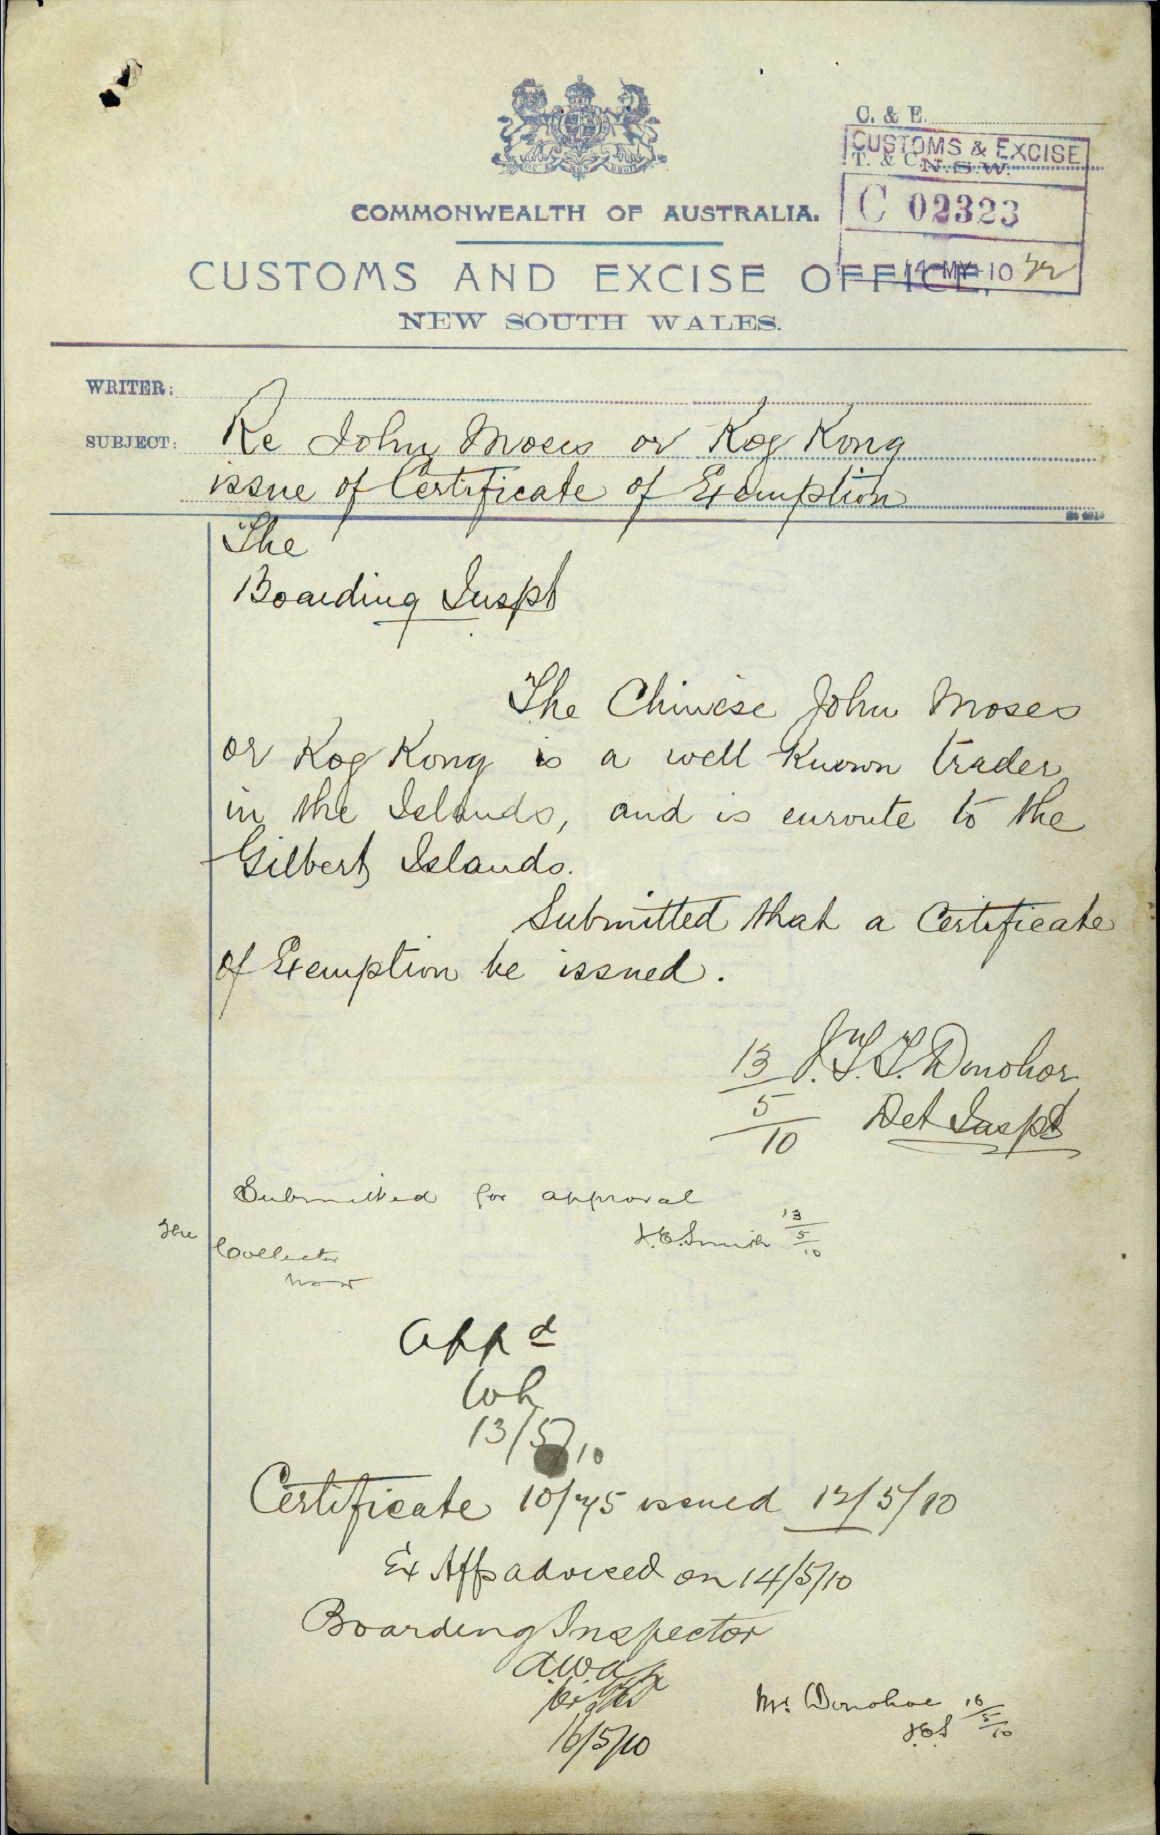 C. & E.
CUSTOMS & EXCISE
T. & C.
N.S.W.
C 02323
COMMONWEALTH OF AUSTRALIA.
14 MY 10
CUSTOMS AND EXCISE OFFICE,
NEW SOUTH WALES.
WRITER:
SUBJECT: Re John Moses or Kog Kong
issue of Certificate of Exemption
The
Boarding Inspt
The Chinese John Moses
or Kog Kong is a well known trader
in the Islands, and is enroute to the
Gilbert Islands.
Submitted that a Certificate
of Exemption be issued.
13/5/10 J.T.T. Donohoe
Det Inspt
Submitted for approval
The Collector
NSW
J.E.Smith 13/5/10
Appd
13/5/10
Certificate 10/75 issued 12/5/10
Ex Affs advised on 14/5/10
Boarding Inspector
16/5/10
Mr. Donohoe 16/5/10
J.E.S